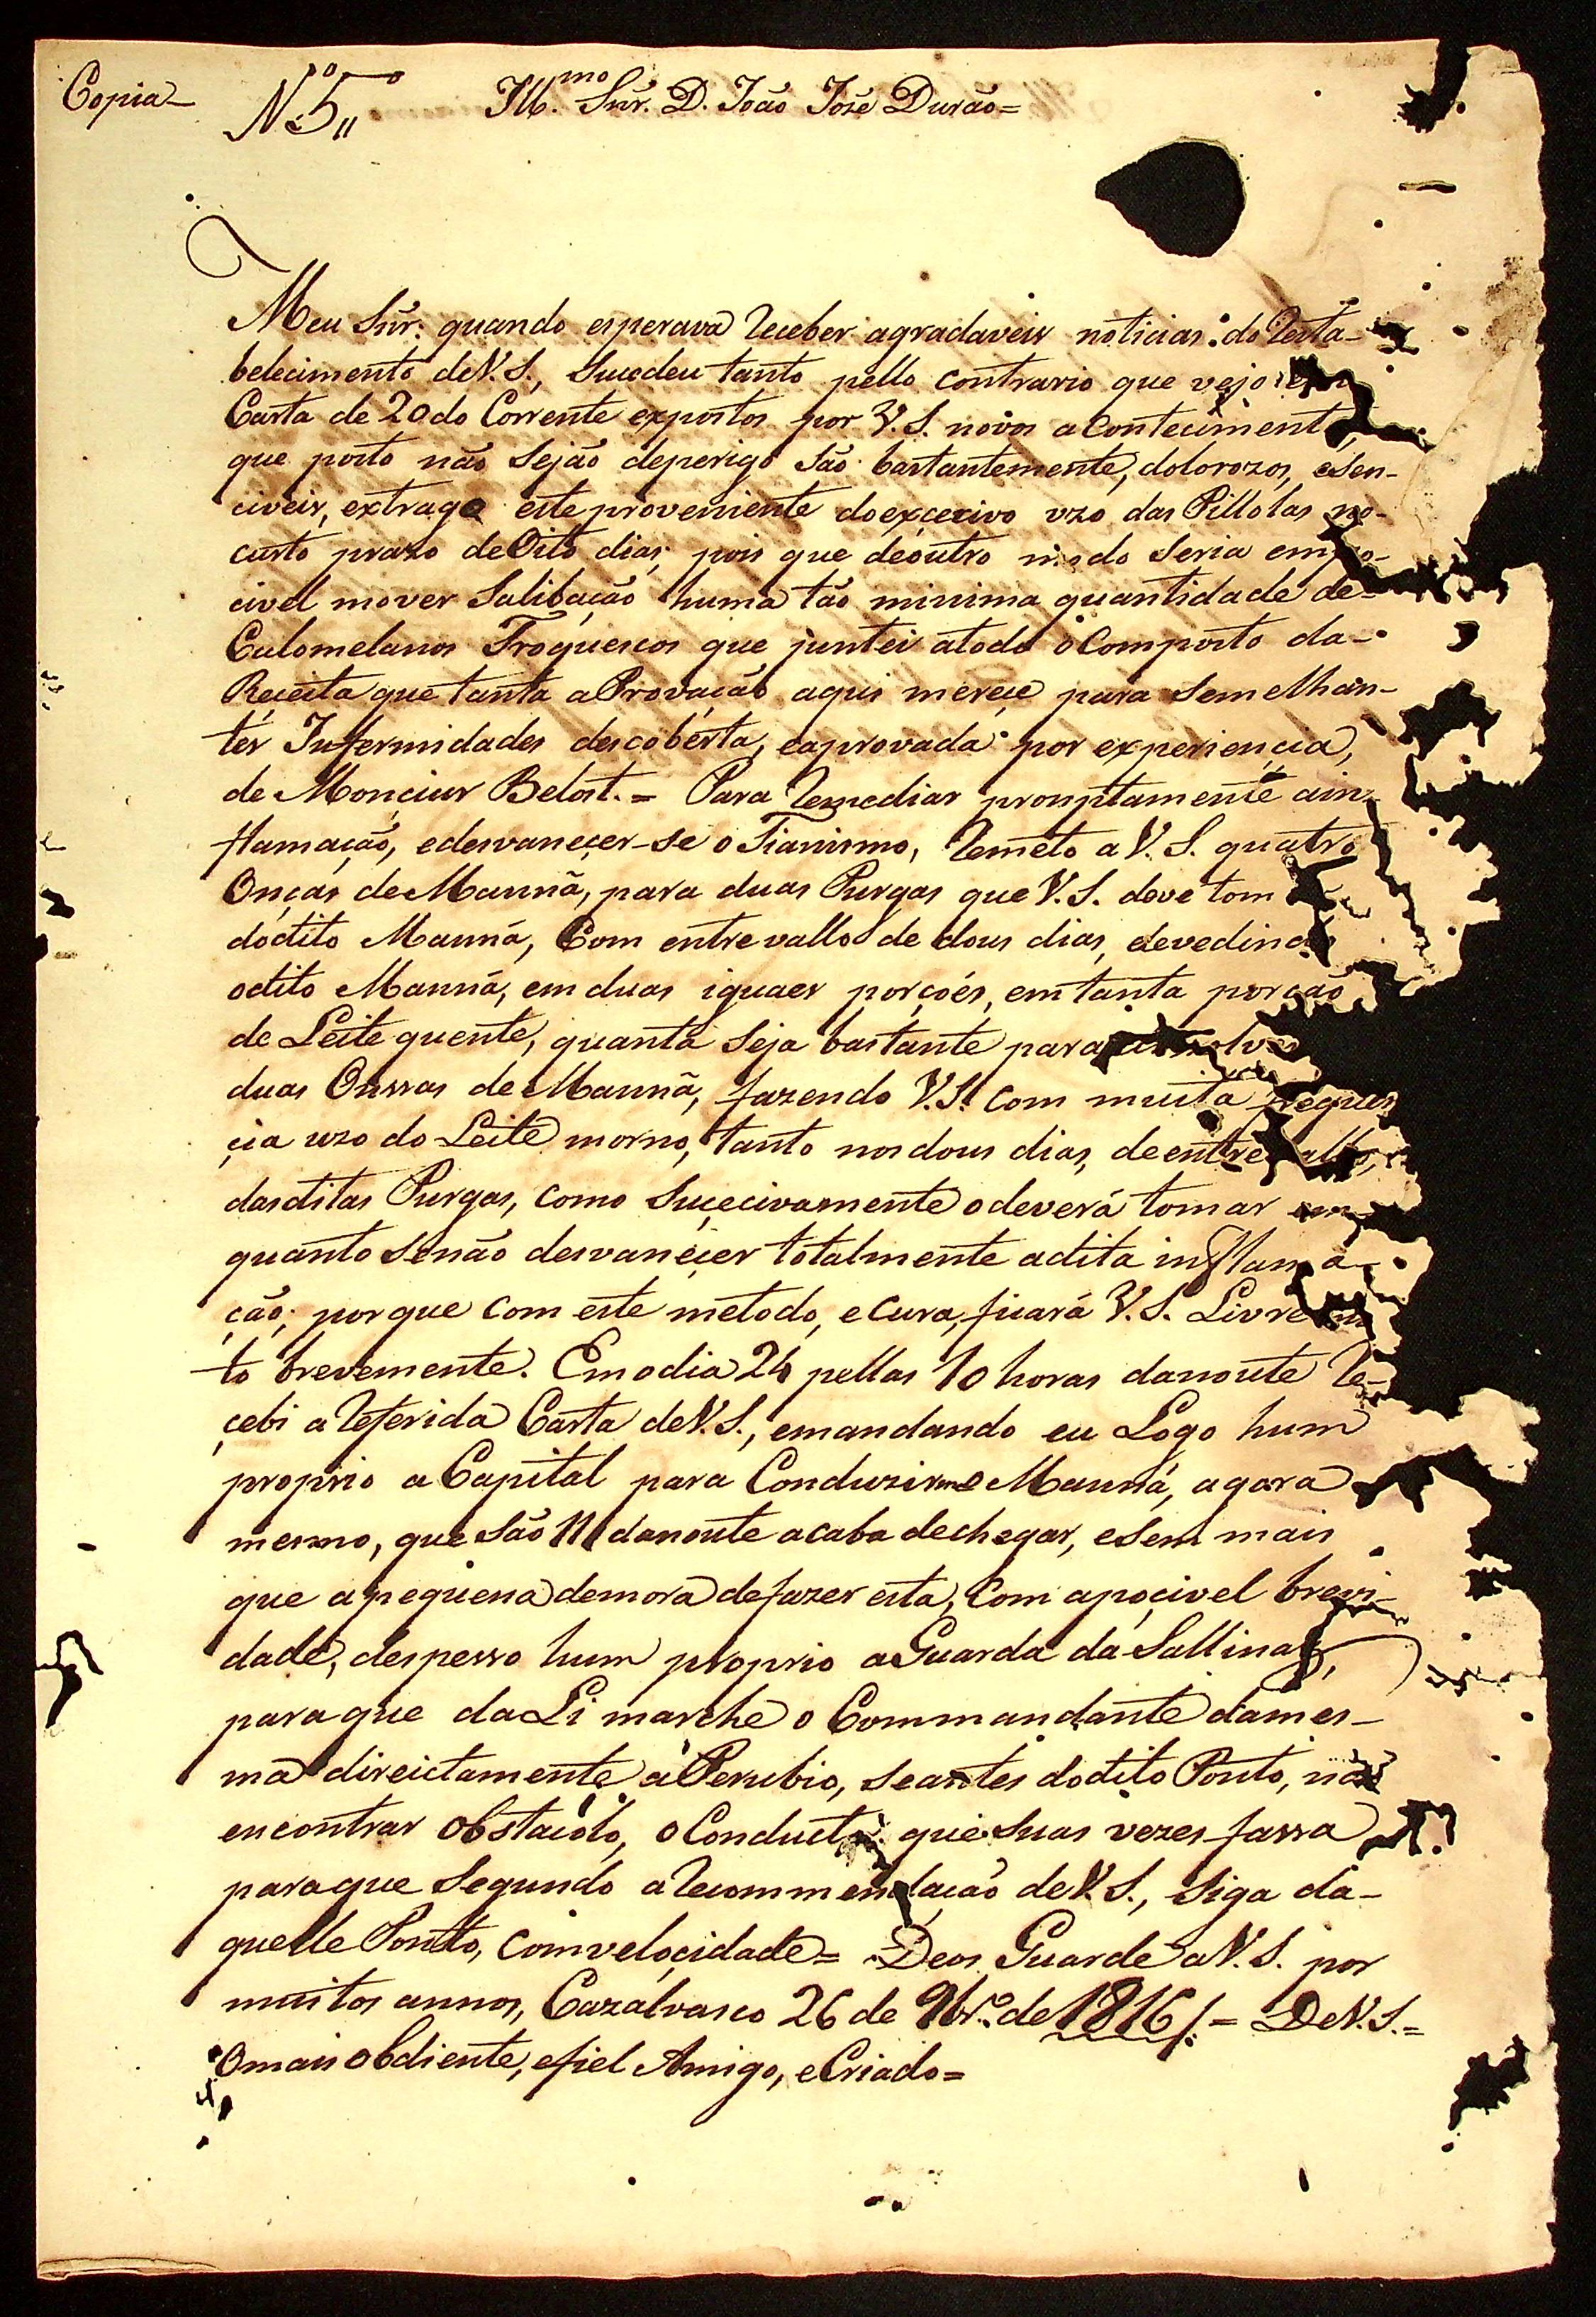 Copia
N.º 5,, Ill.mo Snr. D. João José Durão =
Meu Snr. quando esperava receber agradaveis noticias do resta-
belecimento de V. S., Sucedeu tanto pello contrario que vejo
Carta de 20 do Corrente expostos por V. S. novos acontecimentos,
que posto não Sejão deperigo São bastantemente, dolorozos, eSen-
civeis, extrago este proveniente doexcecivo vzo das Pillolas no
custo prazo deOito dias; pois que deoutro modo Seria empo-
civel mover Salibação huma tão minima quantidade de=
Calomelanos Troquescos que juntei atodo oComposto da-
Receita que tanta aProvação aqui mereçe para Semelhan-
tes Infermidades descoberta, eaprovada por experiencia,
de Moncieur Belost. = Para remediar promptamente ain-
flamação, edesvaneçer-se o Tianismo, remeto a V. S. quatro
Onças deManná, para duas Purgas que V. S. deve tom
doditto Manná, Com entrevallo de dous dias, devedindo
odito Manná, em duas iguaes porçóes, emtanta porção
de Leite quente, quanta Seja bastante para
duas Onssas de Manná, fazendo V. S. Com muita frequen
çia uzo do Leite morno, tanto nosdous dias, de entrevallo,
dasditas Purgas, como Suçecivamente odeverá tomar em
quanto Senão desvaneçer totalmente adita inflama-
ção; porque Com este metodo, eCura, ficará V. S. Livre
to brevemente. Emodia 24 pellas 10 horas danoute re-
çebi areferida Carta deV. S., emandando eu Logo hum
proprio aCapital para Conduzirme Manná, agora
mesmo, que São 11 danoute acaba dechegar, eSem mais
que apequena demora defazer esta, Com apoçivel brevi-
dade, despesso hum proprio aGuarda da Sallinas,
paraque daLi marche o Commandante dames-
ma direictamente a Perubio, Seantes dodito Ponto, não
encontrar obstacolo, oConducta que Suas vezes fassa
paraque Segundo arecommendação deV. S., Siga da-
quelle Ponto, Comvelocidade = Deos Guarde aV. S. por
muitos annos, Cazalvasco 26 de 9br.º de 1816 /: = DeV. S. =
Omais obdiente, efiel Amigo, eCriado =